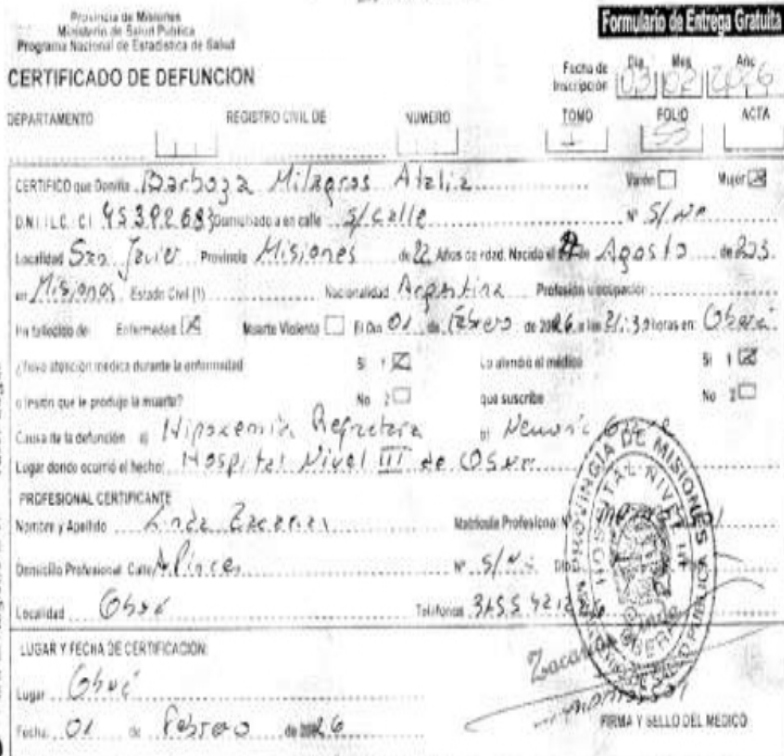 Provincia de Misiones
Ministerio de Salud Publica
Programa Nacional de Estadística de Salud
Formulario de Entrega Gratuita
CERTIFICADO DE DEFUNCION
Fecha de Inscripción Día Mes Año 03 02 2026
DEPARTAMENTO REGISTRO CIVIL DE NUMERO TOMO FOLIO ACTA
1
CERTIFICO que Don/ña Barboza Milagros Atalia Varón Mujer
D.N.I L.C. C.I. domiciliado/a en calle S/Calle Nº S/Nº
Localidad San Javier Provincia Misiones de 22 Años de edad. Nacido el de Agosto de
en Misiones Estado Civil (1) Nacionalidad Argentina Profesión u ocupación
Ha fallecido de: Enfermedad Muerte Violenta El Día 01 de Febrero de 2026 a las 21:30 horas en: Oberá
¿Tuvo atención médica durante la enfermedad Si 1 Lo atendió el médico Si 1
o lesión que le produjo la muerte? No 2 que suscribe No 2
Causa de la defunción a) Hipoxemia Refractaria b)
Lugar donde ocurrió el hecho: Hospital Nivel III de
PROFESIONAL CERTIFICANTE
Nombre y Apellido Matrícula Profesional Nº
Domicilio Profesional: Calle Nº S/Nº
Localidad Oberá Teléfonos
PROVINCIA DE MISIONES
HOSPITAL NIVEL III
LUGAR Y FECHA DE CERTIFICACIÓN:
Lugar Oberá
Fecha: 01 de Febrero de 2026
FIRMA Y SELLO DEL MEDICO